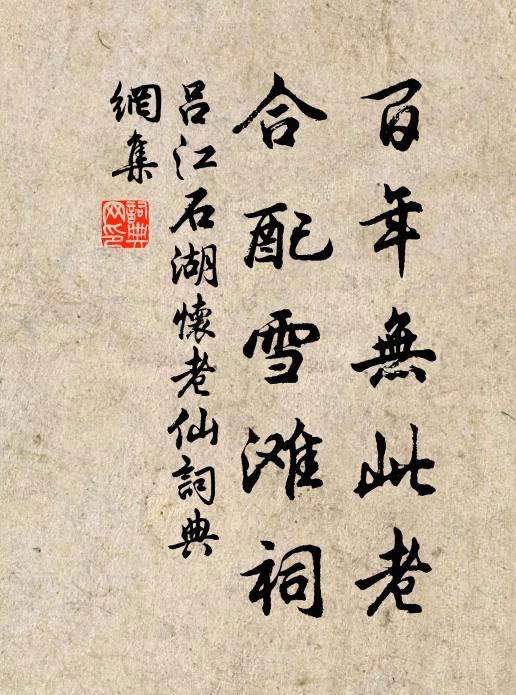 百年無此老
合配雪滩祠
吕江石湖懷老仙詞典
網集
詞典網印